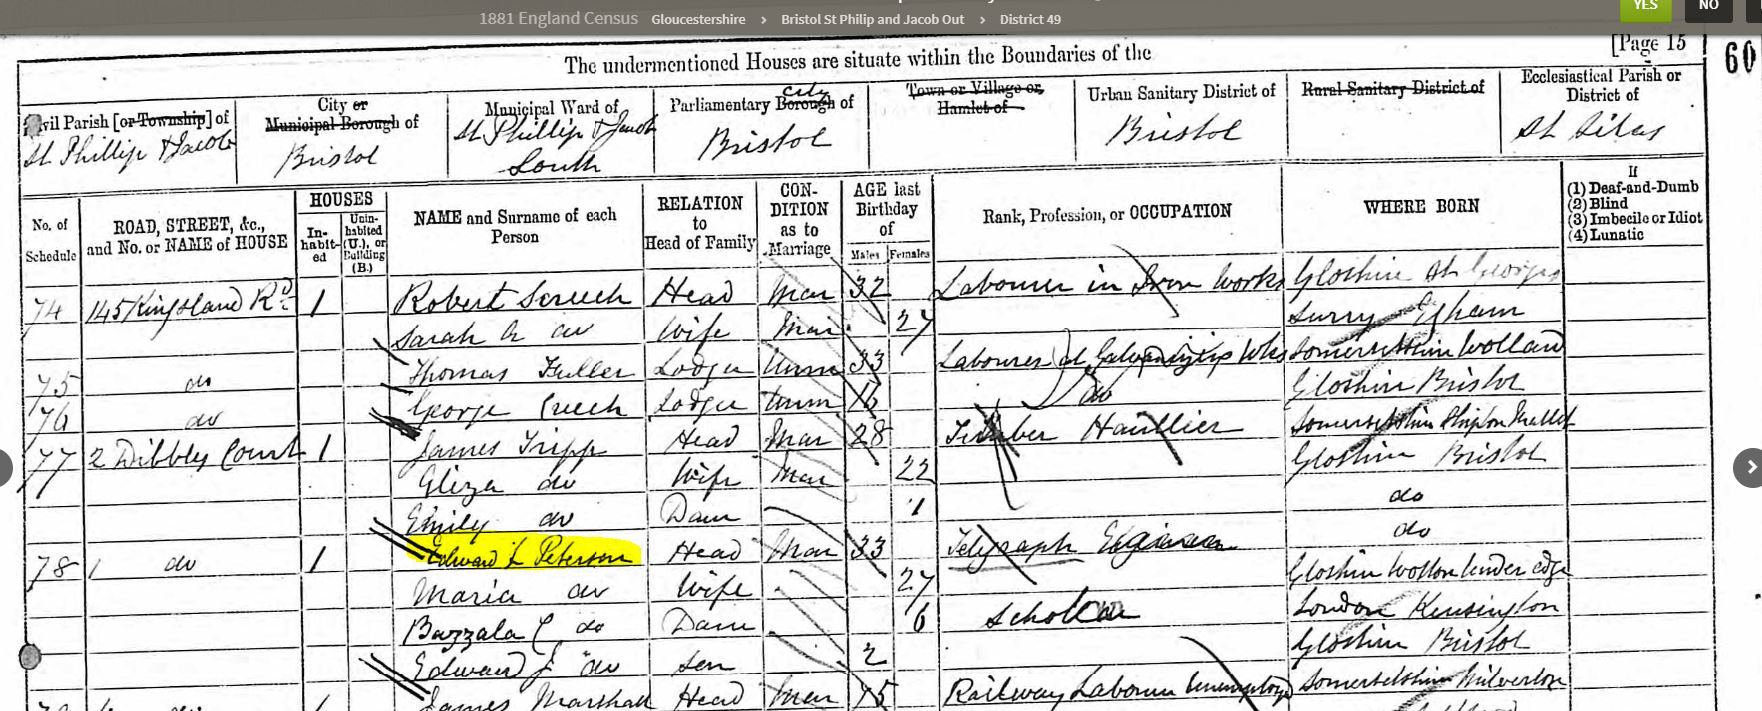 YES
NO
1881 England Census Gloucestershire > Bristol St Philip and Jacob Out > District 49
[Page 15
60
The undermentioned Houses are situate within the Boundaries of the
Civil Parish [or Township] of
St Phillip & Jacob
City or Municipal Borough of
Bristol
Municipal Ward of
St Phillip & Jacob
South
Parliamentary Borough of
city
Bristol
Town or Village or Hamlet of
Urban Sanitary District of
Bristol
Rural Sanitary District of
Ecclesiastical Parish or District of
St Silas
No. of Schedule
ROAD, STREET, &c., and No. or NAME of HOUSE
HOUSES
In-habit-ed
Unin-habited (U.), or Building (B.)
NAME and Surname of each Person
RELATION to Head of Family
CON-DITION as to Marriage
AGE last Birthday of
Males Females
Rank, Profession, or OCCUPATION
WHERE BORN
If
(1) Deaf-and-Dumb
(2) Blind
(3) Imbecile or Idiot
(4) Lunatic
74 145 Kingsland Rd 1 Robert Screech Head Mar 32 Labourer in Iron Works Gloshire St Georges
Sarah A do Wife Mar 27 Surry Egham
75 do Thomas Fuller Lodger Unm 33 Labourer at Galvanizing Wks Somersetshire
76 do George Lodger Unm 16 do Gloshire Bristol
77 2 Dibbles Court 1 James Tripp Head Mar 28 Timber Haullier Somersetshire Shepton Mallet
Eliza do Wife Mar 22 Gloshire Bristol
Emily do Daur 1 do
78 1 do 1 Edward L Peterson Head Mar 33 Telegraph do
Maria do Wife 27 Gloshire Wotton under edge
Bazzala C do Daur 6 Scholar London Kensington
Edward J do Son 2 Gloshire Bristol
James Marshall Head Mar 75 Railway Labourer Somersetshire Milverton